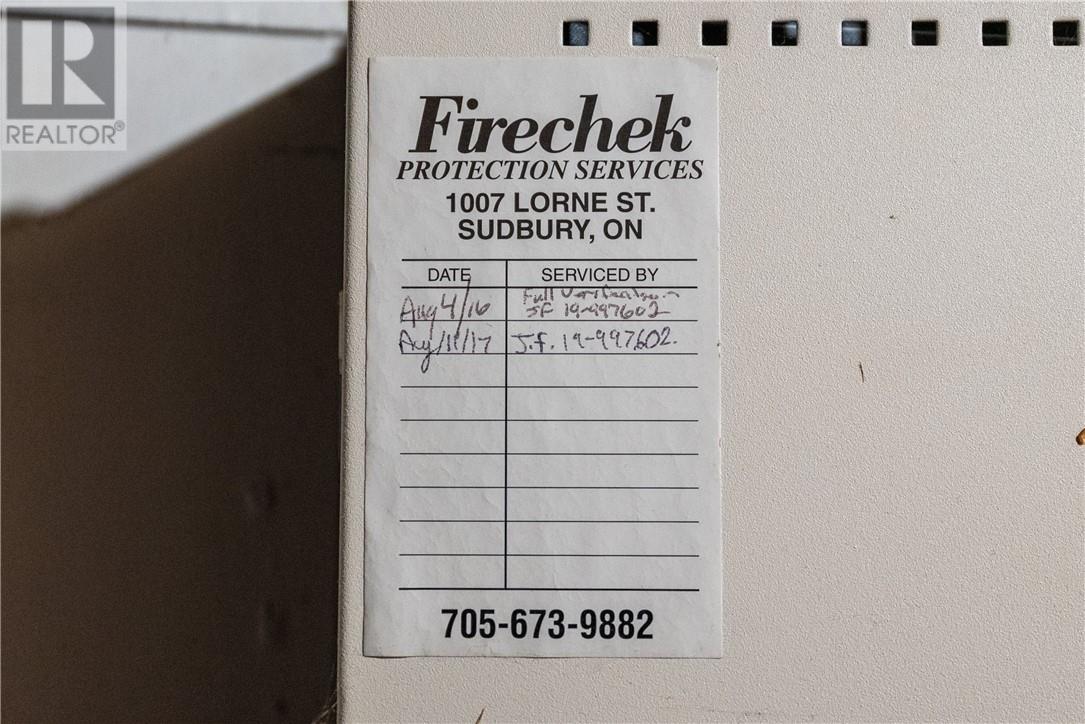 R
REALTOR®
Firechek
PROTECTION SERVICES
1007 LORNE ST.
SUDBURY, ON
DATE SERVICED BY
Aug 4/16 Full Verification
JF 19-997602
Aug/11/17 J.f. 19-997602.
705-673-9882